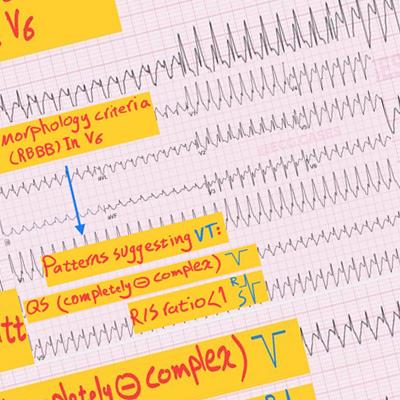 V6
morphology criteria
(RBBB) In V6
Patterns suggesting VT:
QS (completely ⊖ complex)
R/S ratio<1 R
S
V1
V2
V3
V6
aVL
aVF
II
pletely ⊖ complex)